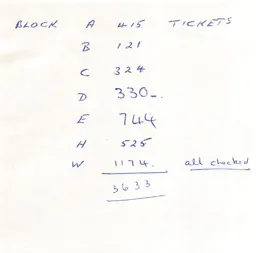 BLOCK A 415 TICKETS
B 121
C 324
D 330-.
E 744
H 525
W 1174. all checked
3633